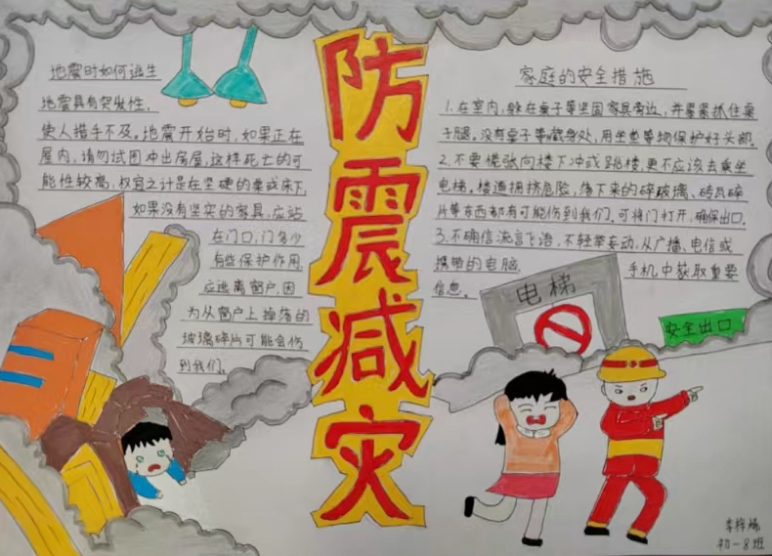 防震减灾
地震时如何逃生
地震具有突发性,
使人措手不及。地震开始时,如果正在
屋内,请勿试图冲出房屋,这样死亡的可
能性较高,权宜之计是在坚硬的桌或床下,
如果没有坚实的家具,应站
在门口,门多少
有些保护作用
应远离窗户,因
为从窗户上掉落的
玻璃碎片可能会伤
到我们。
家庭的安全措施
1.在室内,躲在桌子等坚固家具旁边,并紧紧抓住桌
子腿。没有桌子等藏身处,用坐垫等物保护好头部。
2.不要慌张向楼下冲或跳楼,更不应该去乘坐
电梯。楼道拥挤危险,落下来的碎玻璃、砖瓦碎
片等东西都有可能伤到我们。可将门打开,确保出口。
3.不确信流言飞语,不轻举妄动,从广播、电信或
携带的电脑 手机中获取重要
信息。
电梯
安全出口
李梓
初一8班